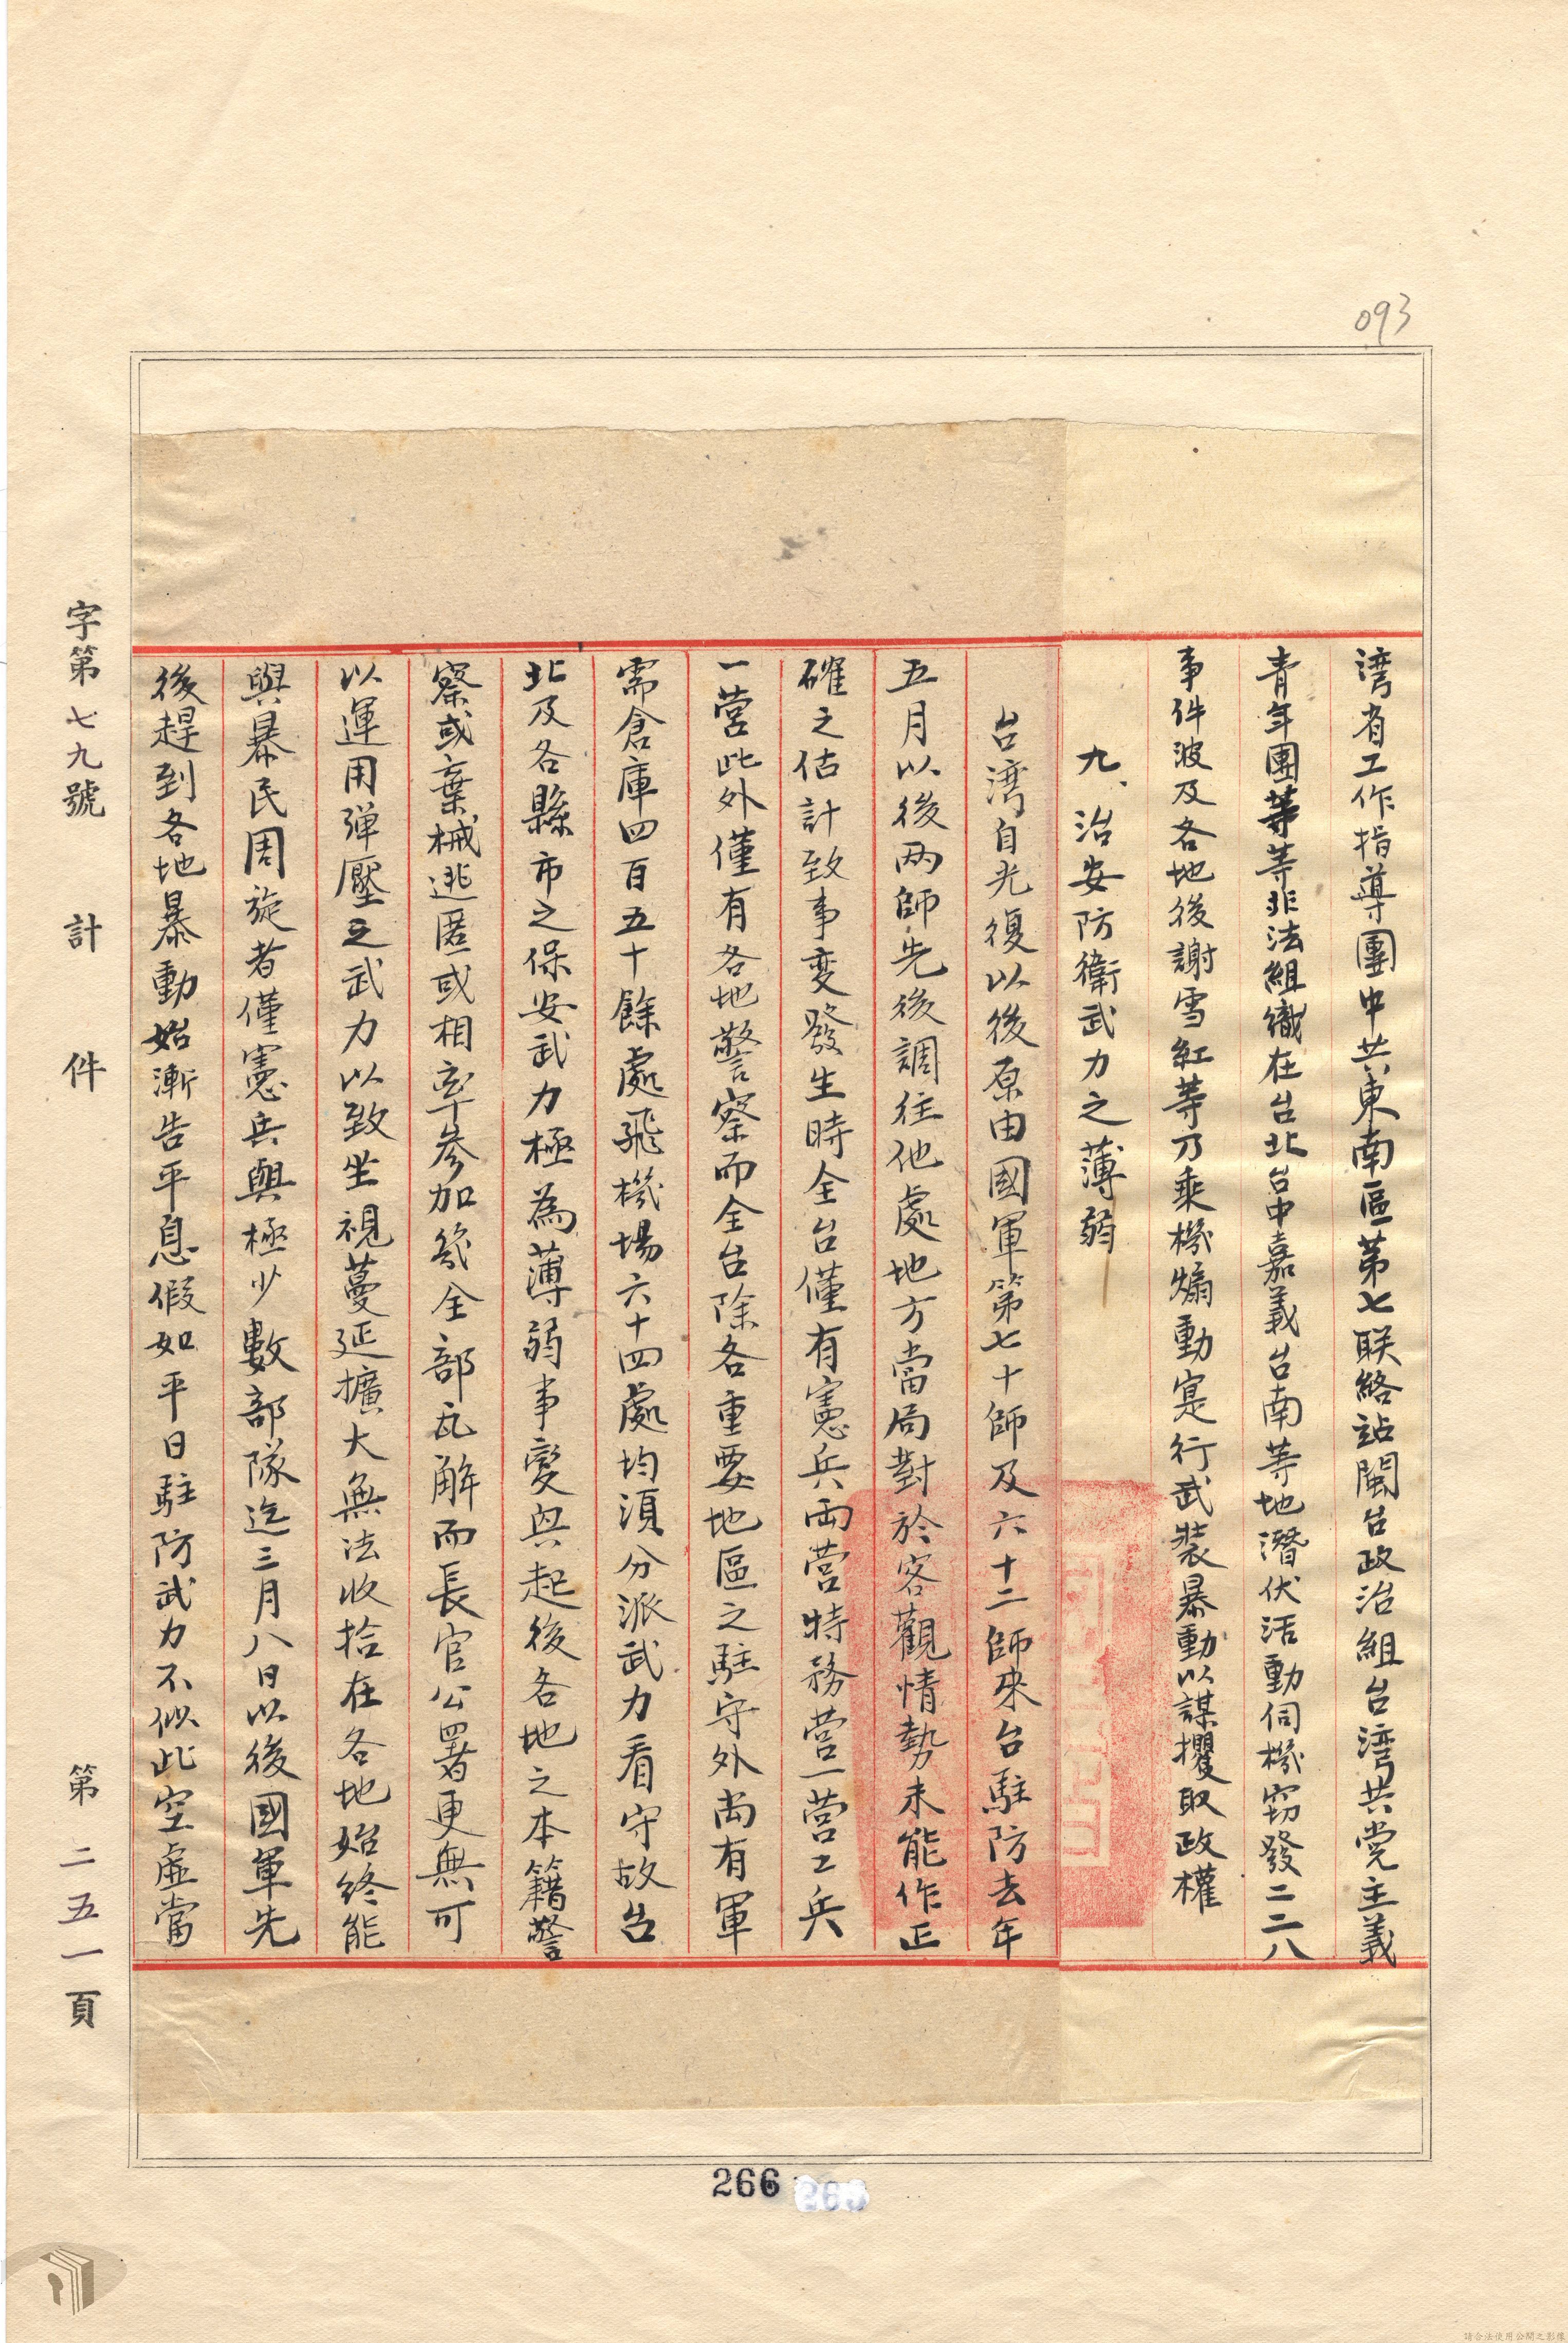 093
湾省工作指導團中共東南區第七联絡站閩台政治組台湾共党主義
青年團等等非法組織在台北台中嘉義台南等地潛伏活動伺機窃發二二八
事件波及各地後謝雪紅等乃乘機煽動寔行武裝暴動以謀攫取政權
九、治安防衛武力之薄弱
台湾自光復以後原由國軍第七十師及六十二師來台駐防去年
五月以後两師先後調往他處地方當局對於客觀情勢未能作正
確之估計致事变發生時全台僅有憲兵両营特務营一营工兵
一营此外僅有各地警察而全台除各重要地區之駐守外尚有軍
需倉庫四百五十餘處飛機場六十四處均須分派武力看守故台
北及各縣市之保安武力極為薄弱事變興起後各地之本籍警
察或棄械逃匿或相率参加幾全部瓦解而長官公署更無可
以運用弹壓之武力以致坐視蔓延擴大無法收拾在各地始終能
與暴民周旋者僅憲兵與極少數部隊迄三月八日以後國軍先
後趕到各地暴動始漸告平息假如平日駐防武力不似此空虛當
字第七九號 計 件 第二五一頁
266
請合法使用公開之影像